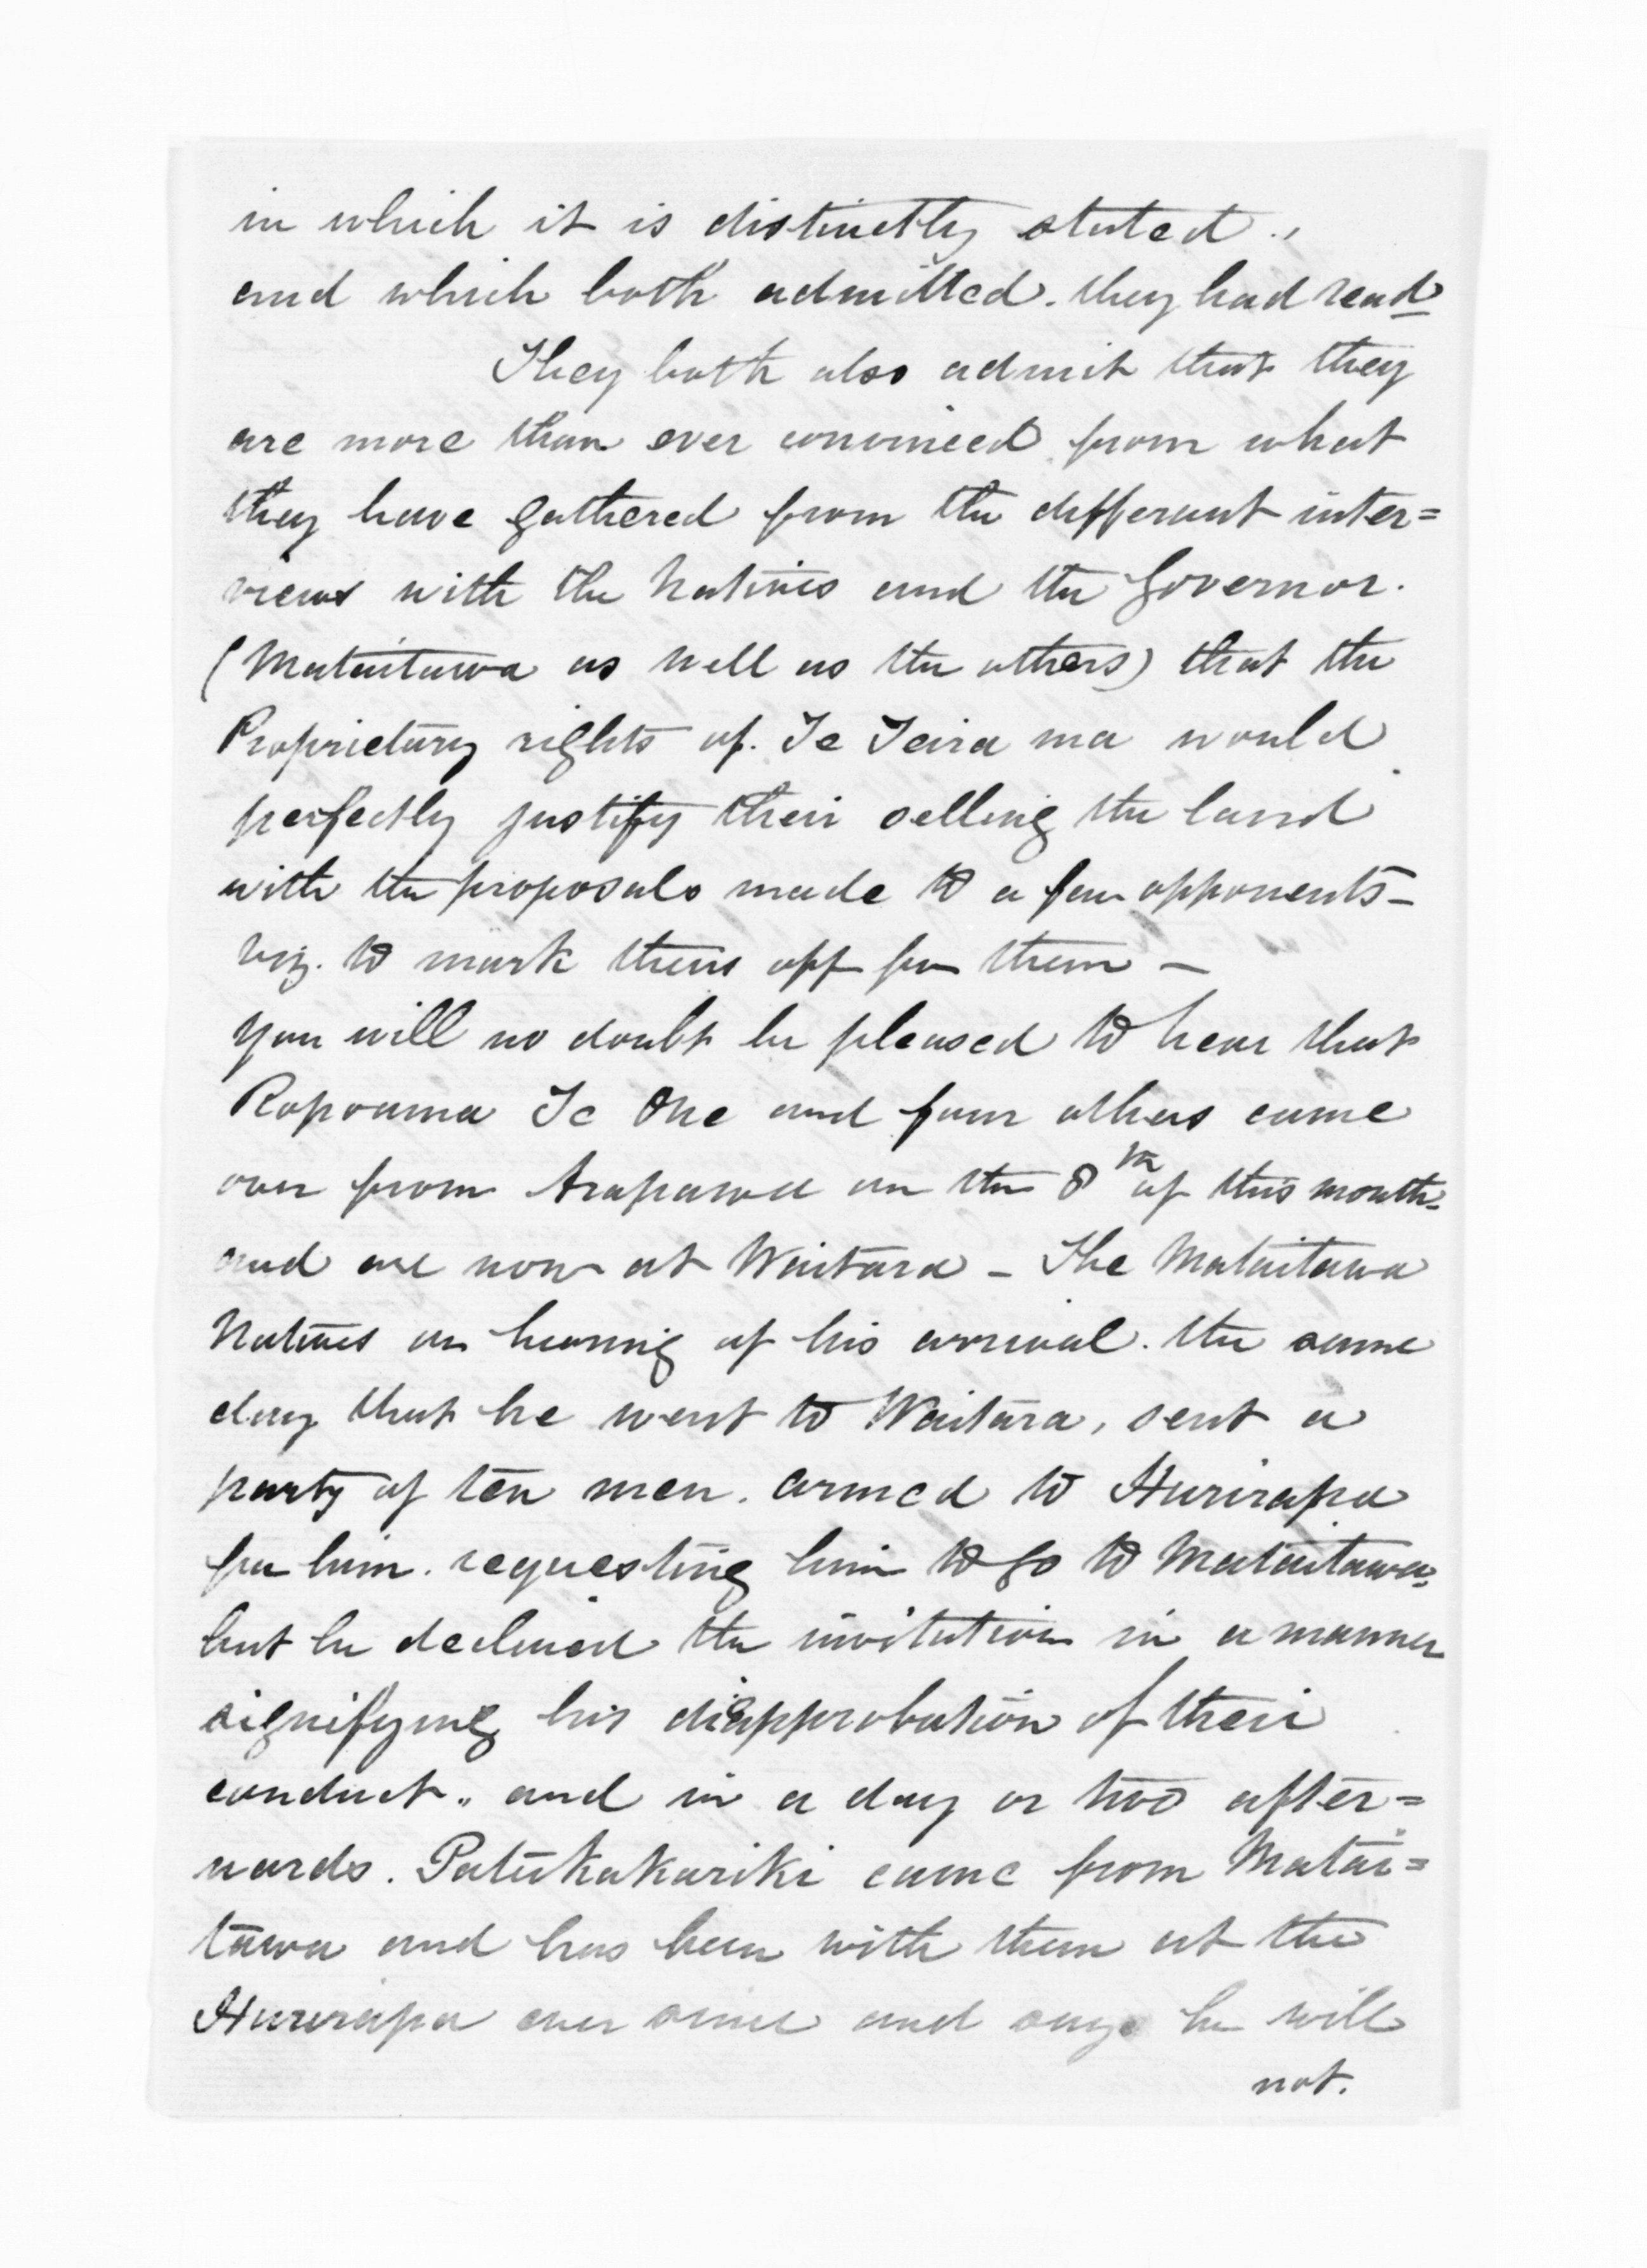 in which it is distinctly stated.,
and which both admitted. they had read
They both also admit that they
are more than ever convinced from what
they have gathered from the different inter=
views with the Natives and the Governor.
(Mataitawa as well as the others) that the
Proprietary rights of. Te Teira ma would
perfectly justify their selling the land
with the proposals made to a few opponents -
viz. to mark theirs off for them -
You will no doubt be pleased to hear that
Ropoama Te One and four others came
over from Arapawa on the 8th of this month-
and are now at Waitara - The Mataitawa
Natives on hearing of his arrival. the same
day that he went to Waitara, sent a
party of ten men. armed to Hurirapa
for him. requesting him to go to Mataitawa,
but he declined the invitation in a manner
signifying his disapprobation of their
conduct.. and in a day or two after=
wards. Patukakariki came from Matai=
tawa and has been with them at the
Hurirapa ever since and says he will
not.